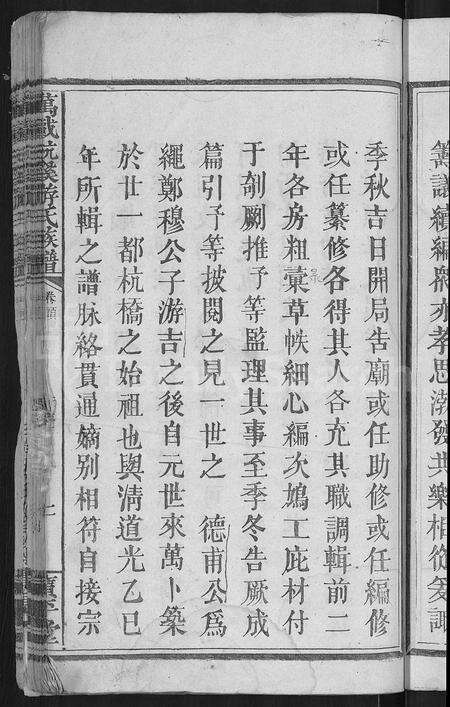 籌議續編衆亦孝思渤發共樂相從爰諏
季秋吉日開局告廟或任助修或任編修
或任纂修各得其人各充其職調輯前二
年各房粗彙草帙細心編次鳩工庇材付
于剞劂推予等監理其事至季冬告厥成
篇引予等披閱之見一世之　德甫公爲
繩鄭穆公子游吉之後自元世來萬卜築
於廿一都杭橋之始祖也與淸道光乙巳
年所輯之譜脉絡貫通嫡别相符自接宗
萬載杭溪游氏族譜
卷首